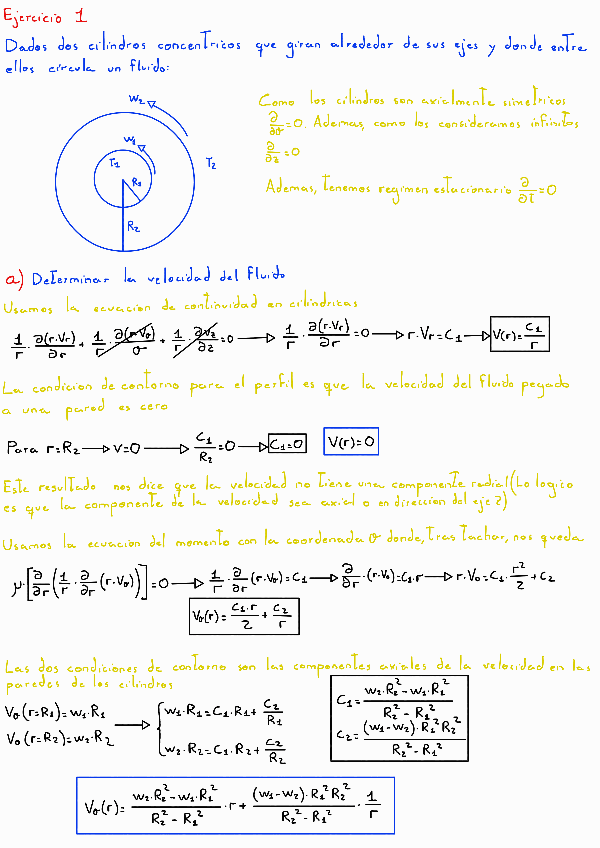 Ejercicio 1
Dados dos cilindros concentricos que giran alrededor de sus ejes y donde entre
ellos circula un fluido:
w₂
w₁
T₁
R₁
T₂
R₂
Como los cilindros son axialmente simetricos
∂/∂θ=0. Ademas, como los consideramos infinitos
∂/∂z=0
Ademas, tenemos regimen estacionario ∂/∂t=0
a) Determinar la velocidad del fluido
Usamos la ecuacion de continuidad en cilindricas
1/r · ∂(r·Vr)/∂r + 1/r · ∂(r·Vθ)/θ + 1/r · ∂vz/∂z = 0 → 1/r · ∂(r·Vr)/∂r = 0 → r·Vr = C₁ → V(r) = C₁/r
La condicion de contorno para el perfil es que la velocidad del fluido pegado
a una pared es cero
Para r=R₂ → v=0 → C₁/R₂ = 0 → C₁=0 V(r)=0
Este resultado nos dice que la velocidad no tiene una componente radial (Lo logico
es que la componente de la velocidad sea axial o en direccion del eje z)
Usamos la ecuacion del momento con la coordenada θ donde, tras tachar, nos queda
μ·[∂/∂r(1/r · ∂/∂r (r·Vθ))] = 0 → 1/r · ∂/∂r (r·Vθ) = C₁ → ∂/∂r · (r·Vθ) = C₁·r → r·Vθ = C₁ · r²/2 + C₂
Vθ(r) = C₁·r/2 + C₂/r
Las dos condiciones de contorno son las componentes axiales de la velocidad en las
paredes de los cilindros
Vθ(r=R₁)=w₁·R₁ → { w₁·R₁ = C₁·R₁ + C₂/R₁ C₁ = (w₂·R₂² - w₁·R₁²)/(R₂² - R₁²)
Vθ(r=R₂)=w₂·R₂ w₂·R₂ = C₁·R₂ + C₂/R₂ C₂ = (w₁-w₂)·R₁²R₂²/(R₂² - R₁²)
Vθ(r) = (w₂·R₂² - w₁·R₁²)/(R₂² - R₁²) · r + (w₁-w₂)·R₁²R₂²/(R₂² - R₁²) · 1/r